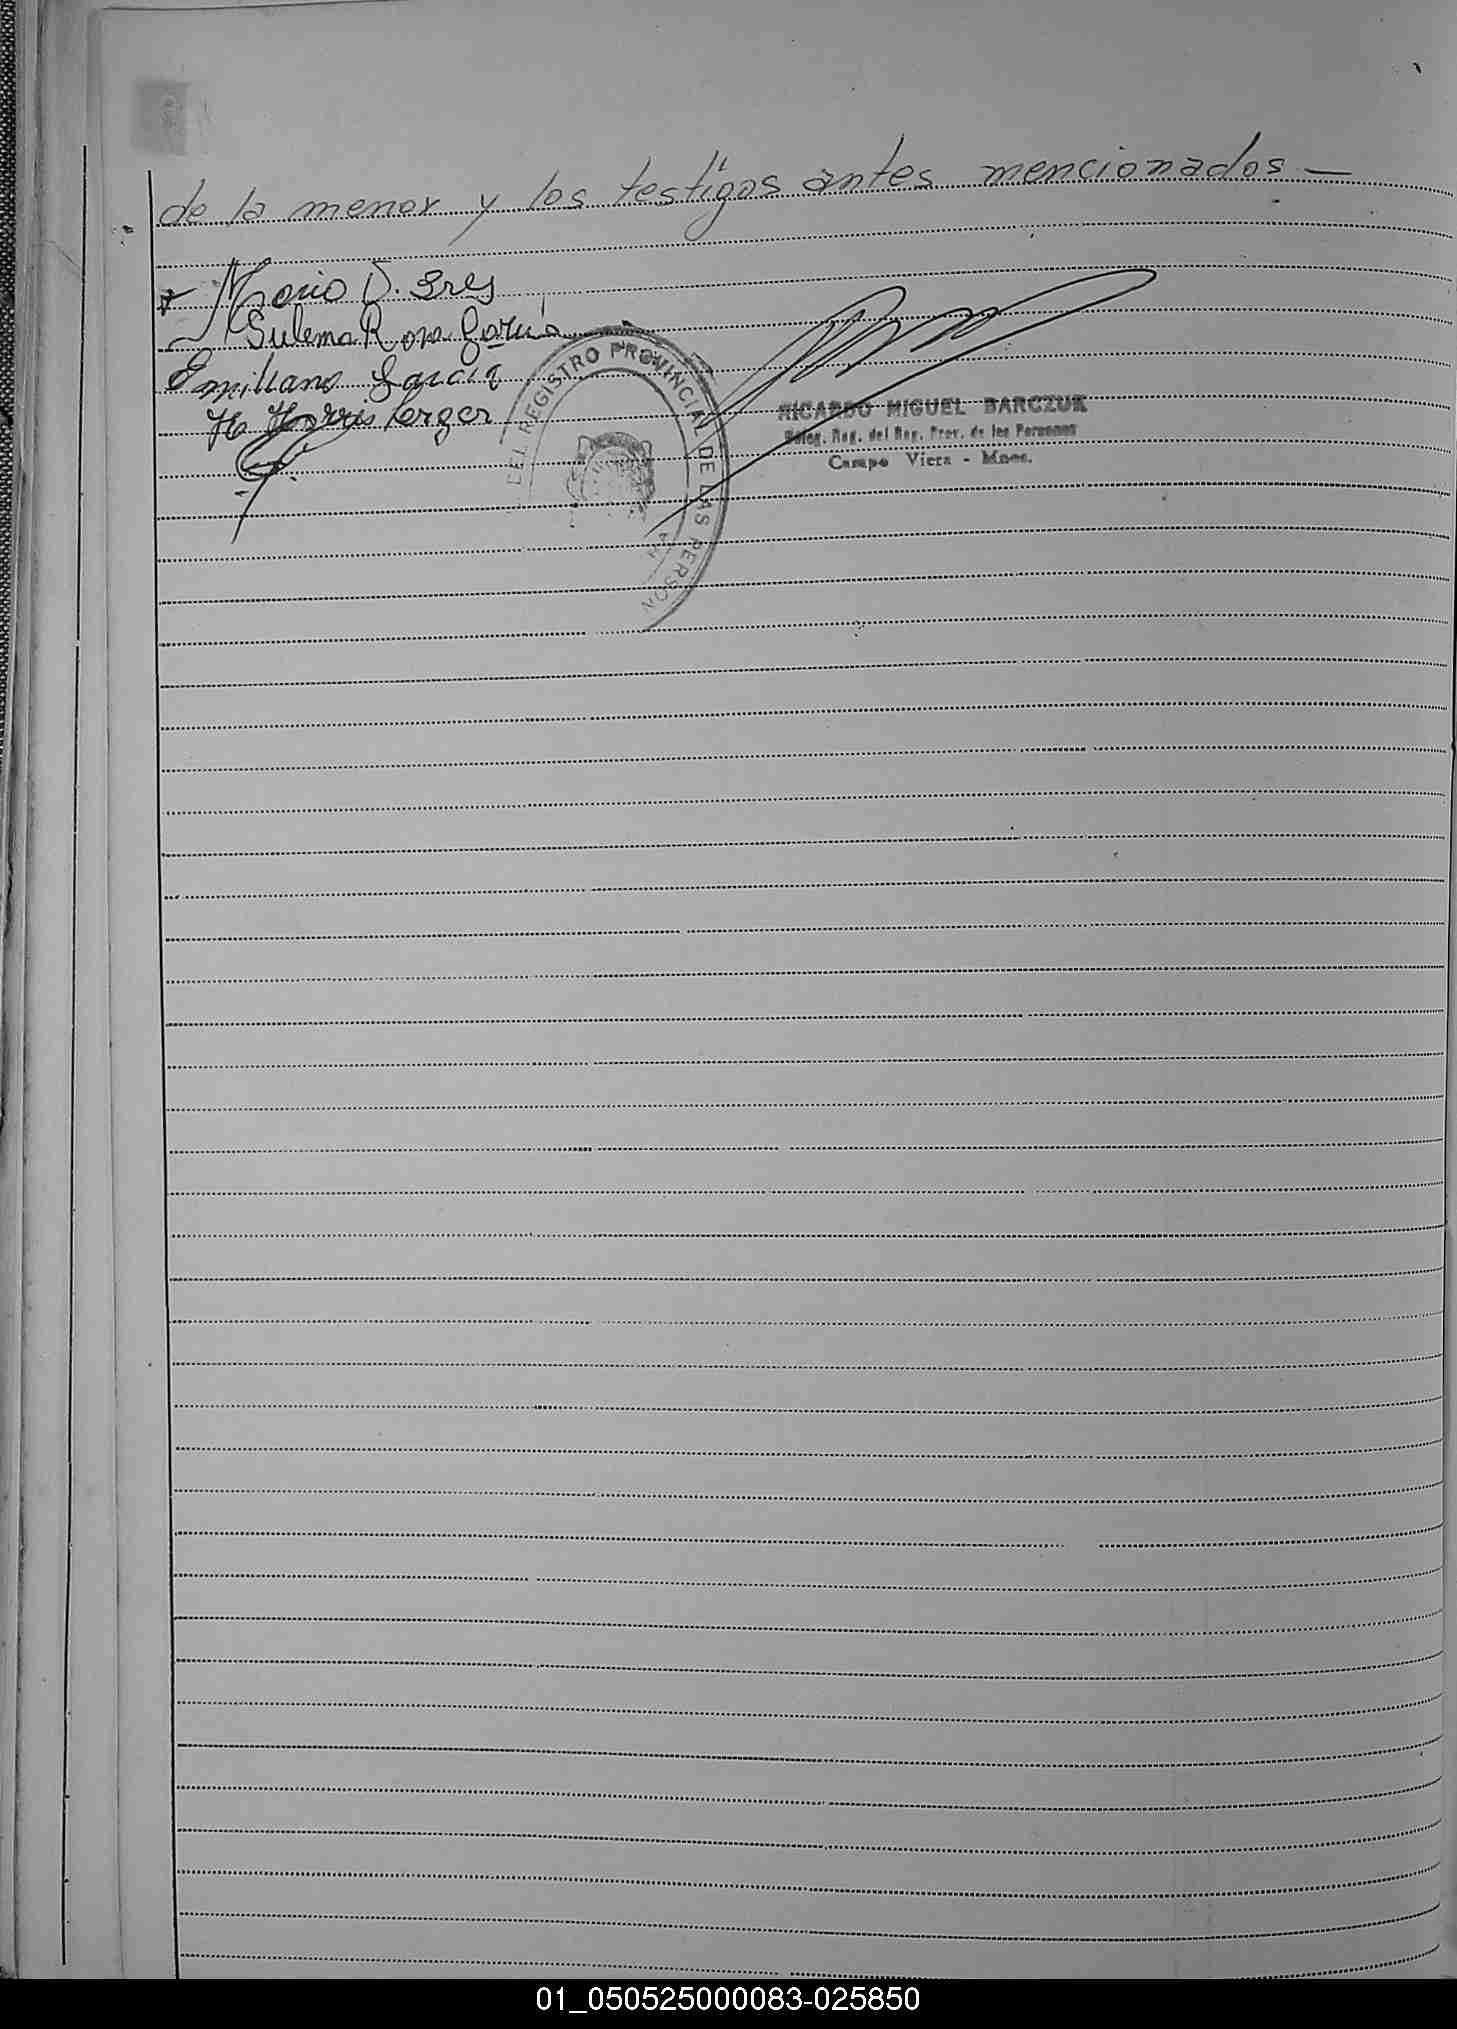 de la menor y los testigos antes mencionados —
Mario D.
Sulema Rosa García
Emiliano Garcia
H.
DEL REGISTRO PROVINCIAL DE LAS PERSON
RICARDO MIGUEL BARCZUK
Deleg. Reg. del Reg. Prov. de las Personas
Campo Viera - Mnes.
01_050525000083-025850